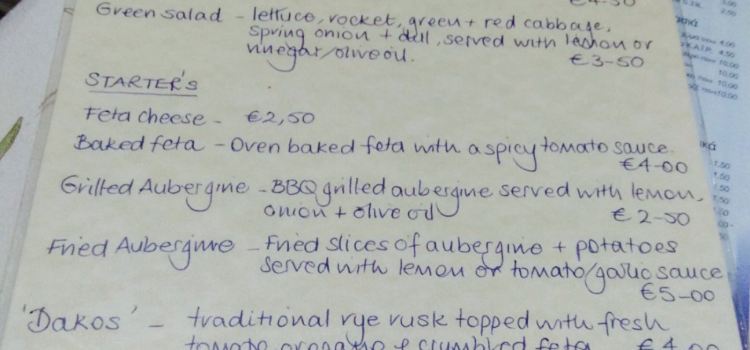 €4-50
Green salad - lettuce, rocket, green + red cabbage,
spring onion + dill, served with lemon or
vinegar/olive oil. €3-50
STARTER'S
Feta cheese - €2,50
Baked feta - Oven baked feta with a spicy tomato sauce.
€4-00
Grilled Aubergine - BBQ grilled aubergine served with lemon,
onion + olive oil €2-50
Fried Aubergine - Fried slices of aubergine + potatoes
served with lemon or tomato/garlic sauce
€5-00
'Dakos' - traditional rye rusk topped with fresh
tomato oregano & crumbled feta €4.00